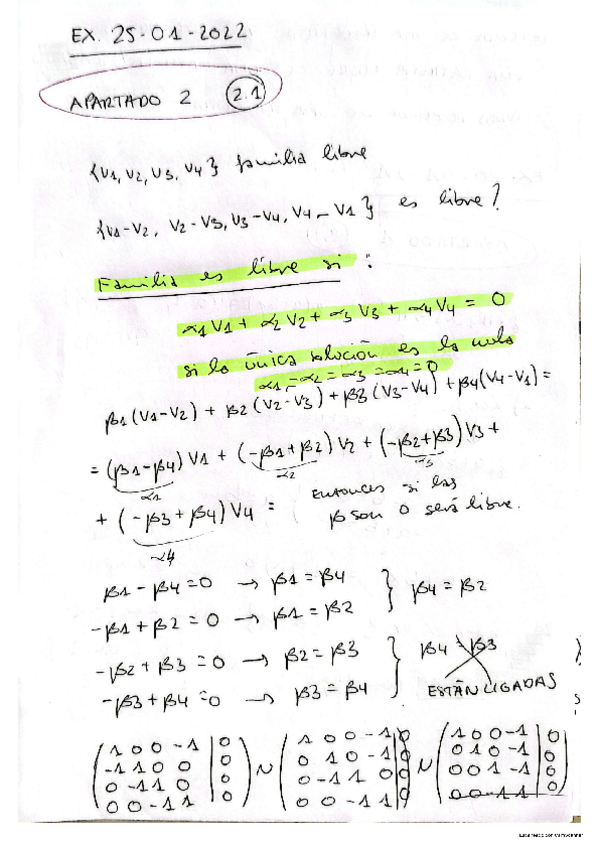 EX. 25-01-2022
APARTADO 2 (2.1)
{v1, v2, v3, v4} familia libre
{v1-v2, v2-v3, v3-v4, v4-v1} es libre?
Familia es libre si :
α1V1 + α2V2 + α3V3 + α4V4 = 0
si la única solución es la nula
α1 = α2 = α3 = α4 = 0
β1(V1-V2) + β2(V2-V3) + β3(V3-V4) + β4(V4-V1) =
= (β1-β4)V1 + (-β1+β2)V2 + (-β2+β3)V3 +
α1 α2 α3
+ (-β3+β4)V4 = Entonces si las
β son 0 será libre.
α4
β1 - β4 = 0 → β1 = β4
-β1 + β2 = 0 → β1 = β2 } β4 = β2
-β2 + β3 = 0 → β2 = β3 } β4 = β3
-β3 + β4 = 0 → β3 = β4 ESTÁN LIGADAS
(1 0 0 -1 | 0) (1 0 0 -1 | 0) (1 0 0 -1 | 0)
(-1 1 0 0 | 0) ~ (0 1 0 -1 | 0) ~ (0 1 0 -1 | 0)
(0 -1 1 0 | 0) (0 -1 1 0 | 0) (0 0 1 -1 | 0)
(0 0 -1 1 | 0) (0 0 -1 1 | 0) (0 0 -1 1 | 0)